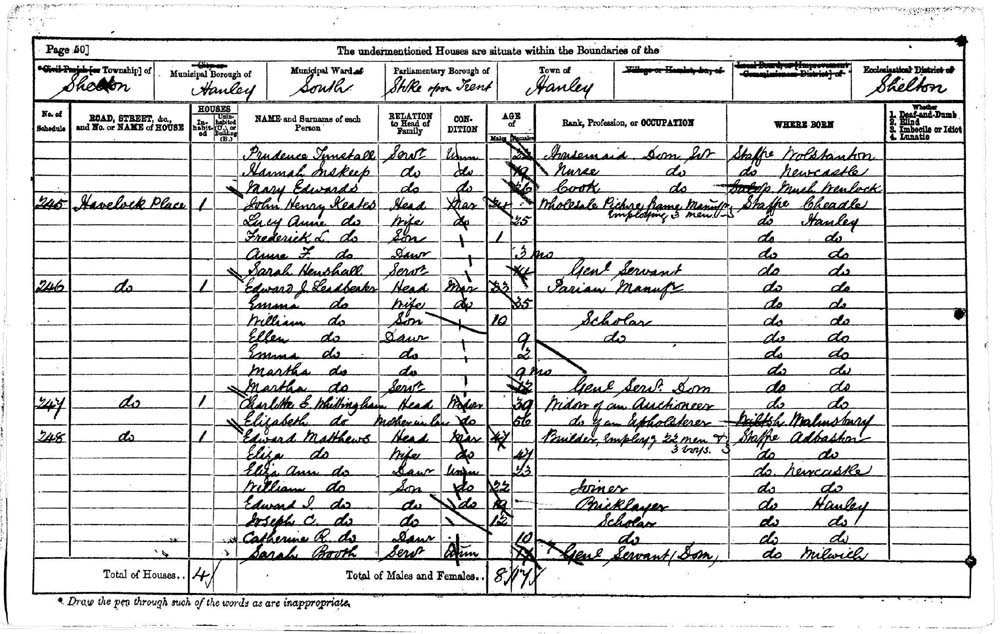 Page 50]
The undermentioned Houses are situate within the Boundaries of the
Civil Parish [or Township] of
Shelton
City or
Municipal Borough of
Hanley
Municipal Ward of
South
Parliamentary Borough of
Stoke upon Trent
Town of
Hanley
Village or Hamlet, &c., of
Local Board, or [Improvement Commissioners District] of
Ecclesiastical District of
Shelton
No. of Schedule
ROAD, STREET, &c., and No. or NAME of HOUSE
HOUSES
Inhabited
Uninhabited (U.), or Building (B.)
NAME and Surname of each Person
RELATION to Head of Family
CONDITION
AGE of
Males
Females
Rank, Profession, or OCCUPATION
WHERE BORN
Whether
1. Deaf-and-Dumb
2. Blind
3. Imbecile or Idiot
4. Lunatic
Prudence Tunstall Servt Unm 22 Housemaid Dom, Svt Staffre Wolstanton
Hannah Inskeep do do 19 Nurse do do Newcastle
Mary Edwards do do 26 Cook do Much Wenlock
245 Havelock Place 1 John Henry Keates Head Mar Wholesale Picture Frame Manufr Staffre Cheadle
Employing 3 men
Lucy Anne do Wife do 35 do Hanley
Frederick L. do Son 1 do do
Anne F. do Dawr 3 mo do do
Sarah Henshall Servt Genl Servant do do
246 do 1 Edward J. Leadbeater Head Mar 33 Parian Manufr do do
Emma do Wife do 35 do do
William do Son 10 Scholar do do
Ellen do Dawr 9 do do do
Emma do do 2 do do
Martha do do 9 mo do do
Martha do Servt Genl Servt. Dom do do
247 do 1 Charlotte E. Whittingham Head Widow 39 Widow of an Auctioneer do do
Elizabeth do Mother in law do 56 do of an Upholsterer Wiltsh Malmsbury
248 do 1 Edward Matthews Head Mar 47 Builder, Employg 22 men & Staffre Adbaston
3 boys.
Eliza do Wife do 47 do do
Eliza Ann do Dawr Unm 23 do Newcastle
William do Son do 22 Joiner do do
Edward I. do do do 19 Bricklayer do Hanley
Joseph C. do do 12 Scholar do do
Catherine R. do Dawr 10 do do do
Sarah Booth Servt Unm Genl Servant (Dom) do Milwich
Total of Houses.. 4
Total of Males and Females.. 8 17
* Draw the pen through such of the words as are inappropriate.